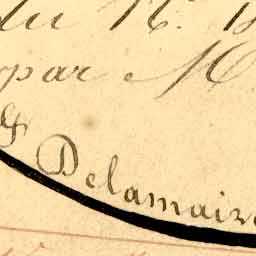 du N.
par M
& Delamair